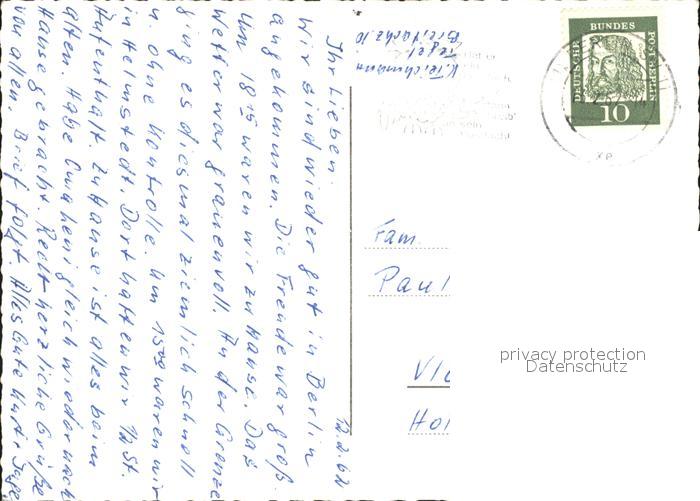 12.2.62
Ihr Lieben.
Wir sind wieder gut in Berlin
angekommen. Die Freude war groß.
Um 18 15 waren wir zu Hause. Das
Wetter war grauenvoll. An der Grenze
ging es diesmal ziemlich schnell
u. ohne Kontrolle. Um 15 waren wir
in Helmstedt. Dort hatten wir 1/2 St.
Aufenthalt. Zu Hause ist alles beim
alten. Habe gleich wieder nach
Hause gebracht. Recht herzliche Grüße
von allen Brief folgt. Alles Gute Kurt +
K. Teichmann
Tegel
Breitachz. 10
DEUTSCHE
BUNDES
POST BERLIN
10
XP
Fam.
Paul
Vlo
Hol
privacy protection
Datenschutz